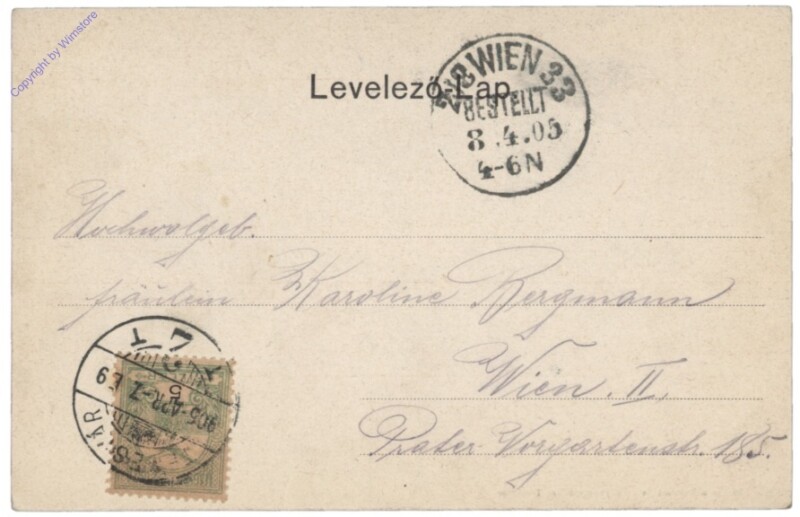 Copyright by Wimstore
Levelező-Lap.
2/8 WIEN 33
BESTELLT
8.4.05
4-6N
Hochwolgeb.
fräulein Karoline Bergmann
Wien. II.
Prater Vorgartenstr. 185.
905 APR-7 E9
5